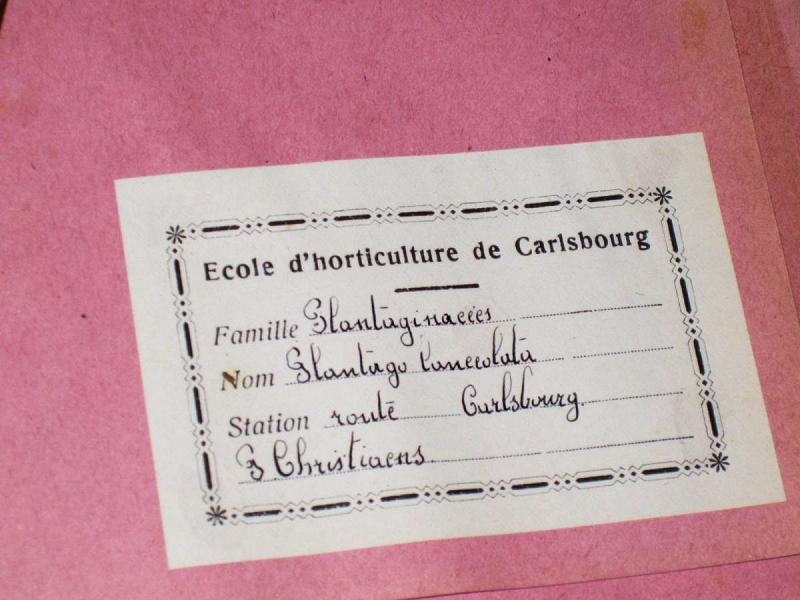 Ecole d'horticulture de Carlsbourg
Famille Plantaginacées
Nom Plantago lanceolata
Station route Carlsbourg.
Christiaens